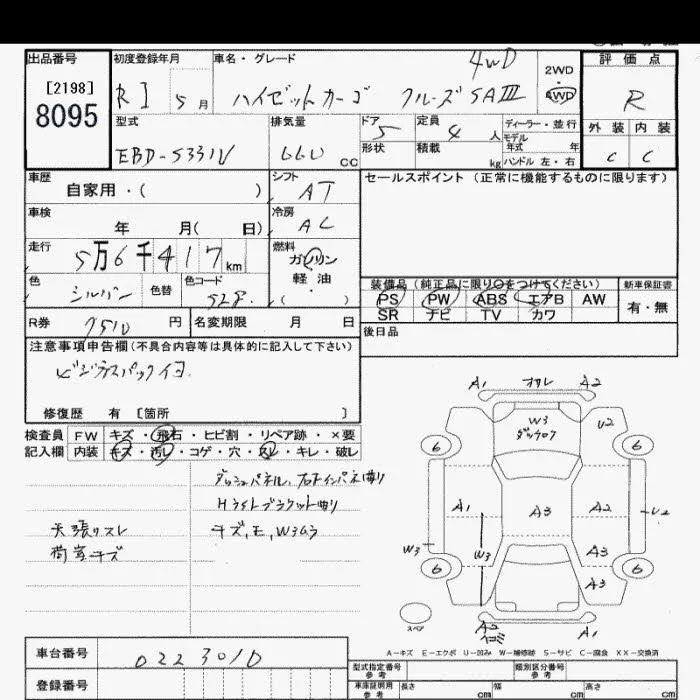 出品番号
[2198]
8095
初度登録年月
R1 5月
車名・グレード
4WD
ハイゼットカーゴ クルーズSAIII
2WD
・
4WD
評価点
R
外装 内装
C C
型式
EBD-S331V
排気量
660 CC
ドア
5
形状
定員
4人
積載
kg
ディーラー・並行
モデル
年式 年
ハンドル 左・右
車歴
自家用・( )
シフト
AT
セールスポイント (正常に機能するものに限ります)
車検
年 月( 日)
冷房
AC
走行
5万6千417km
燃料
ガソリン
軽油
( )
色
シルバー
色替
色コード
S28.
装備品 (純正品に限り○をつけてください)
PS PW ABS エアB AW
SR ナビ TV カワ
新車保証書
有・無
R券
7510 円
名変期限 月 日
後日品
注意事項申告欄(不具合内容等は具体的に記入して下さい)
修復歴 有 [箇所 ]
検査員
記入欄
FW キズ・飛石・ヒビ割・リペア跡・×要
内装 キズ・汚レ・コゲ・穴・スレ・キレ・破レ
ダッシュパネル、右Fインパネ曲り
Hライトブラケット曲り
キズ、モ、W3ムラ
天張りスレ
荷室キズ
A1 オサレ A2
W3
U2
6 6
A1 A3 A2
U2
W3 W3 A3
6 6
A3
スペア
A2 A1
A-キズ E-エクボ U-凹み W-補修跡 S-サビ C-腐食 XX-交換済
車台番号
0223010
登録番号
型式指定番号
参考
類別区分番号
参考
車庫証明用
参考
長さ cm 幅 cm 高さ cm